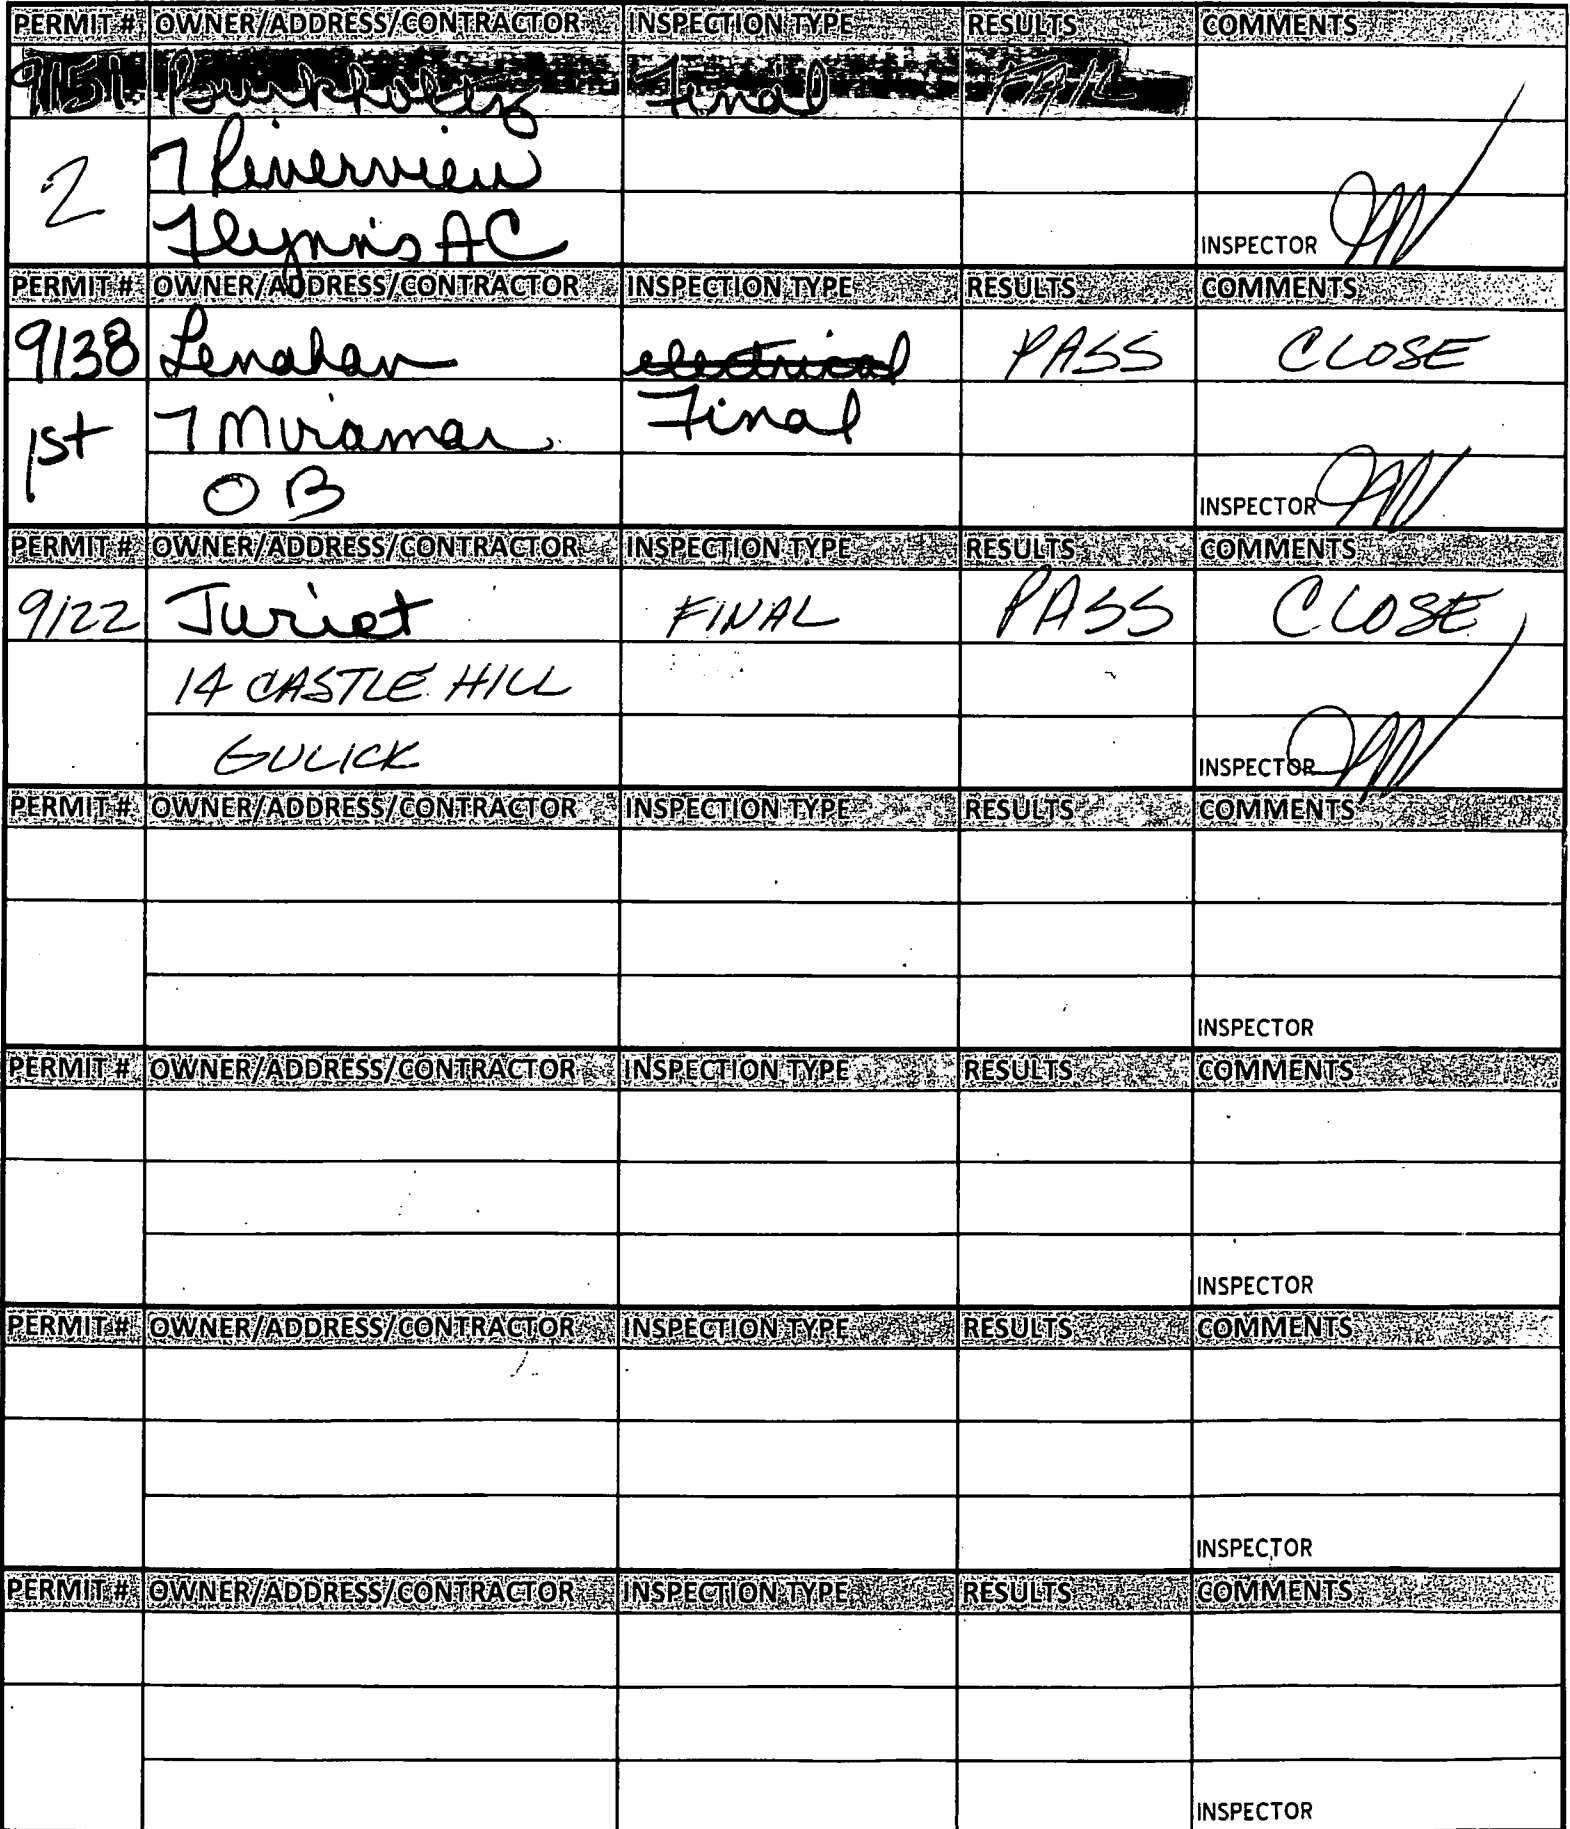 PERMIT # OWNER/ADDRESS/CONTRACTOR INSPECTION TYPE RESULTS COMMENTS
9151 Burkholtz Final FAIL
2 7 Riverview
Flynn's AC INSPECTOR
PERMIT # OWNER/ADDRESS/CONTRACTOR INSPECTION TYPE RESULTS COMMENTS
9138 Lenahan electrical PASS CLOSE
1st 7 Miramar Final
OB INSPECTOR
PERMIT # OWNER/ADDRESS/CONTRACTOR INSPECTION TYPE RESULTS COMMENTS
9122 Juriet FINAL PASS CLOSE
14 CASTLE HILL
GULICK INSPECTOR
PERMIT # OWNER/ADDRESS/CONTRACTOR INSPECTION TYPE RESULTS COMMENTS
INSPECTOR
PERMIT # OWNER/ADDRESS/CONTRACTOR INSPECTION TYPE RESULTS COMMENTS
INSPECTOR
PERMIT # OWNER/ADDRESS/CONTRACTOR INSPECTION TYPE RESULTS COMMENTS
INSPECTOR
PERMIT # OWNER/ADDRESS/CONTRACTOR INSPECTION TYPE RESULTS COMMENTS
INSPECTOR